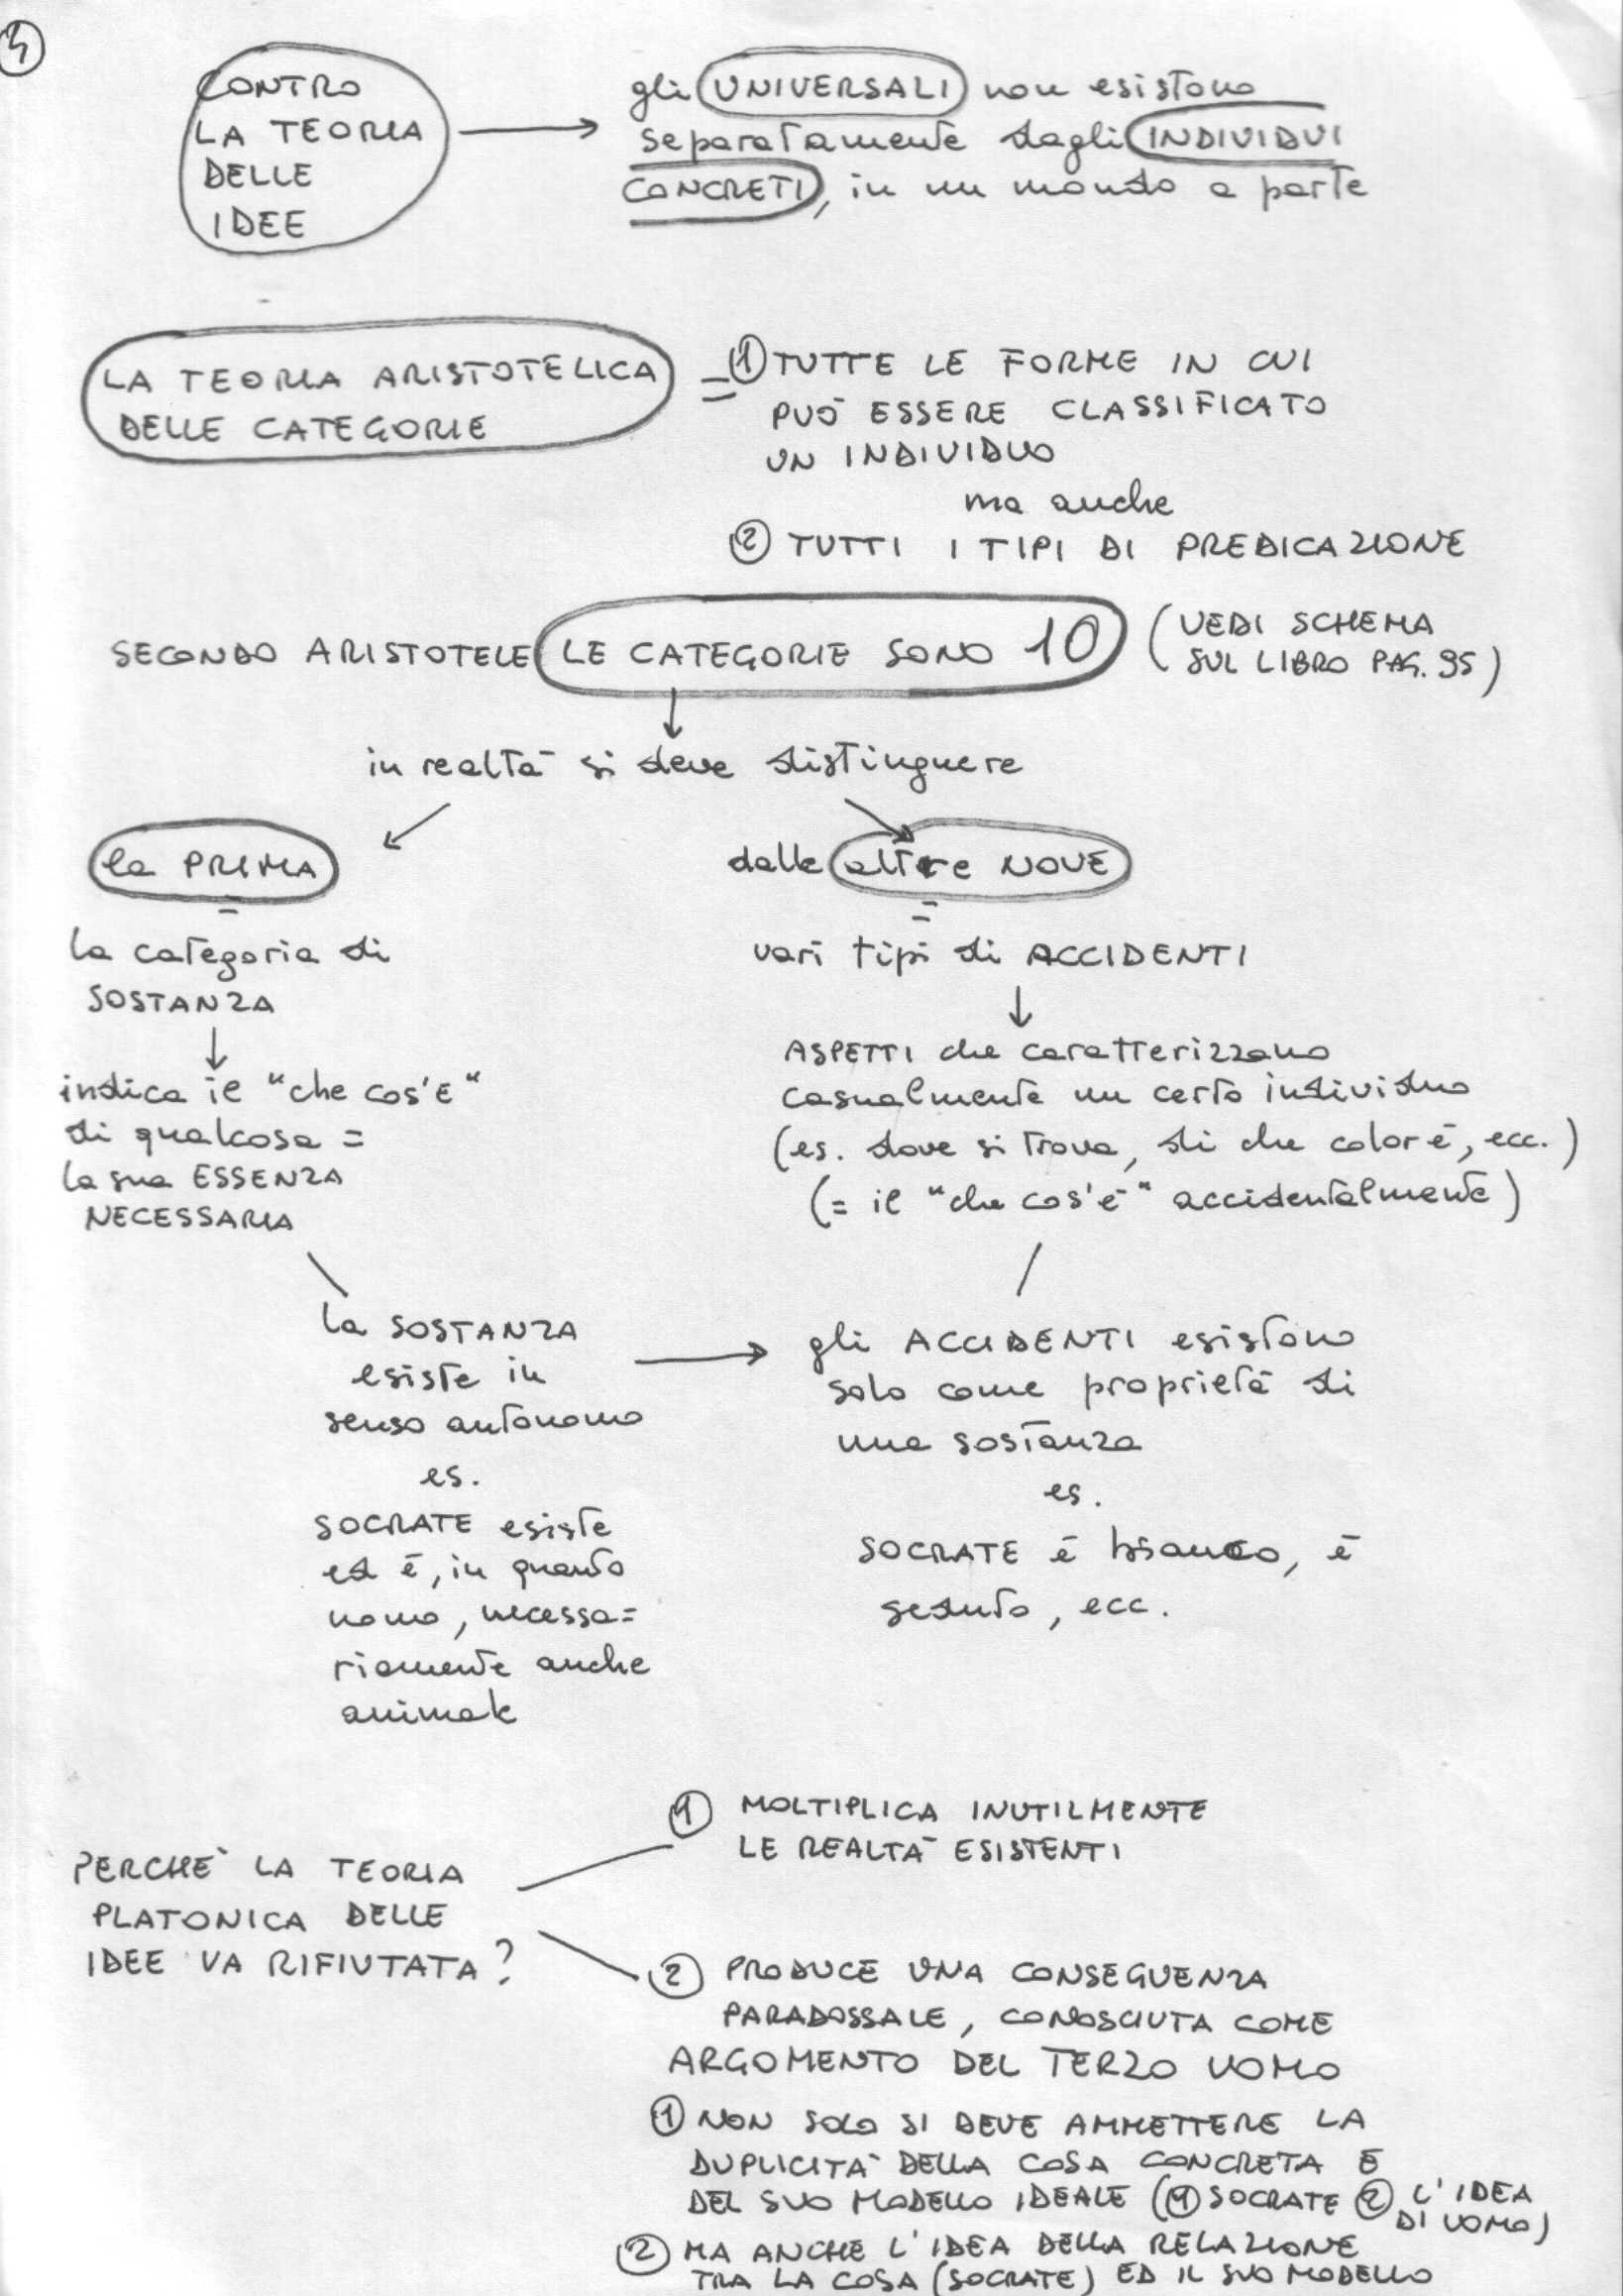 CONTRO
LA TEORIA
DELLE
IDEE
gli UNIVERSALI non esistono
separatamente dagli INDIVIDUI
CONCRETI, in un mondo a parte
LA TEORIA ARISTOTELICA
DELLE CATEGORIE
= ① TUTTE LE FORME IN CUI
PUÒ ESSERE CLASSIFICATO
UN INDIVIDUO
ma anche
② TUTTI I TIPI DI PREDICAZIONE
SECONDO ARISTOTELE LE CATEGORIE SONO 10
(VEDI SCHEMA
SUL LIBRO PAG. 95)
in realtà si deve distinguere
la PRIMA
=
la categoria di
SOSTANZA
indica il "che cos'È"
di qualcosa =
la sua ESSENZA
NECESSARIA
dalle altre NOVE
=
vari tipi di ACCIDENTI
ASPETTI che caratterizzano
casualmente un certo individuo
(es. dove si trova, di che color è, ecc.)
(= il "che cos'è" accidentalmente)
la SOSTANZA
esiste in
senso autonomo
es.
SOCRATE esiste
ed è, in quanto
uomo, necessa=
riamente anche
animale
gli ACCIDENTI esistono
solo come proprietà di
una sostanza
es.
SOCRATE è bianco, è
seduto, ecc.
PERCHÈ LA TEORIA
PLATONICA DELLE
IDEE VA RIFIUTATA?
① MOLTIPLICA INUTILMENTE
LE REALTÀ ESISTENTI
② PRODUCE UNA CONSEGUENZA
PARADOSSALE, CONOSCIUTA COME
ARGOMENTO DEL TERZO UOMO
① NON SOLO SI DEVE AMMETTERE LA
DUPLICITÀ DELLA COSA CONCRETA E
DEL SUO MODELLO IDEALE (① SOCRATE ② L'IDEA
DI UOMO)
② MA ANCHE L'IDEA DELLA RELAZIONE
TRA LA COSA (SOCRATE) ED IL SUO MODELLO